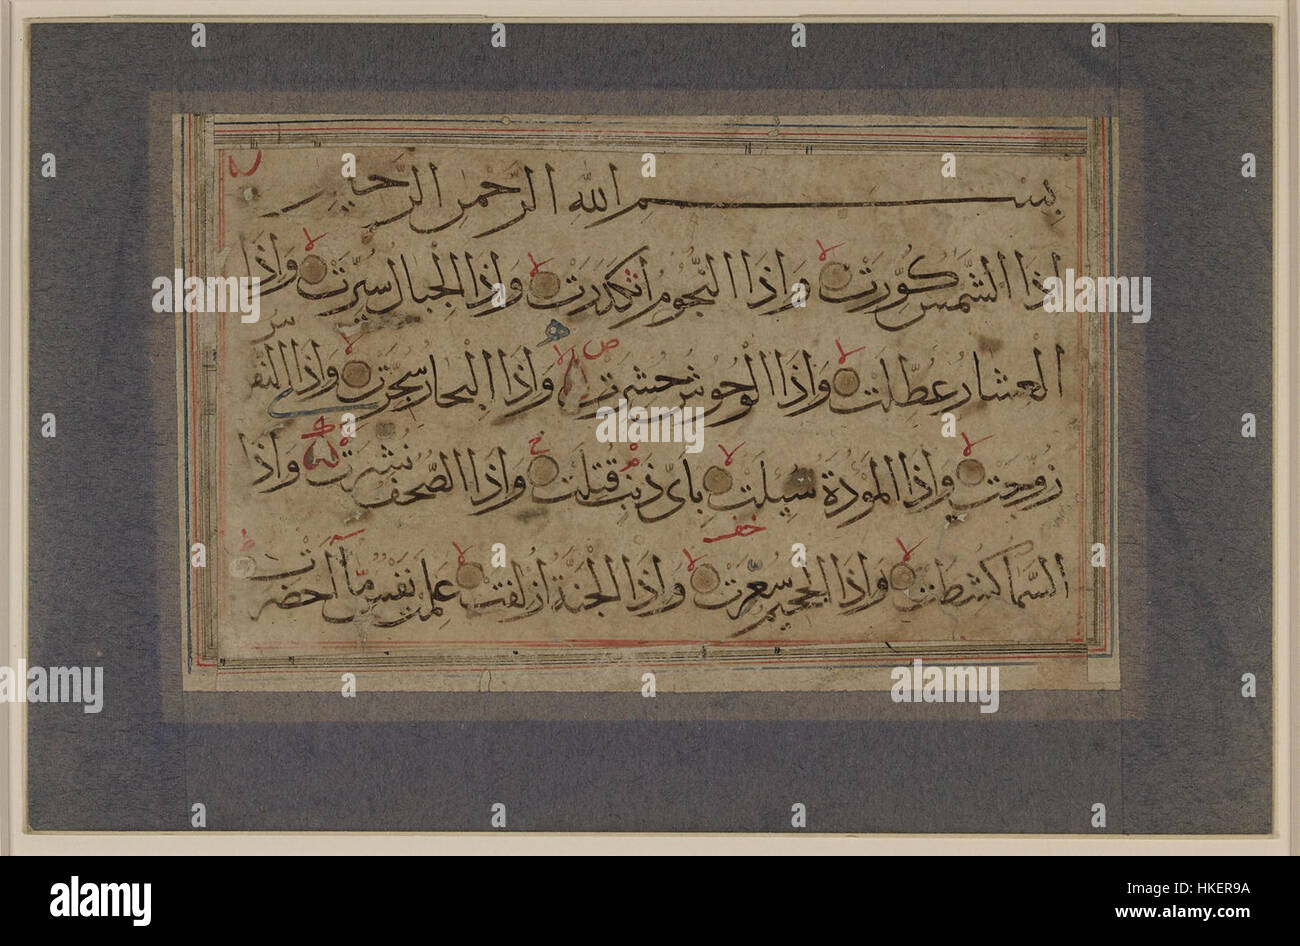 بسم الله الرحمن الرحيم
اذا الشمس كُوِّرَتْ وَاِذَا النُّجُومُ انْكَدَرَتْ وَاِذَا الْجِبَالُ سُيِّرَتْ وَاِذَا
الْعِشَارُ عُطِّلَتْ وَاِذَا الْوُحُوشُ حُشِرَتْ وَاِذَا الْبِحَارُ سُجِّرَتْ وَاِذَا النُّفُ
زُوِّجَتْ وَاِذَا الْمَوْدَةُ سُيِلَتْ بِاَىِّ ذَنْبٍ قُتِلَتْ وَاِذَا الصُّحُفُ نُشِرَتْ وَاِذَا
السَّمَا كُشِطَتْ وَاِذَا الْجَحِيمُ سُعِّرَتْ وَاِذَا الْجَنَّةُ اُزْلِفَتْ عَلِمَتْ نَفْسٌ مَّا اَحْضَرَتْ
alamy
Image ID: HKER9A
www.alamy.com